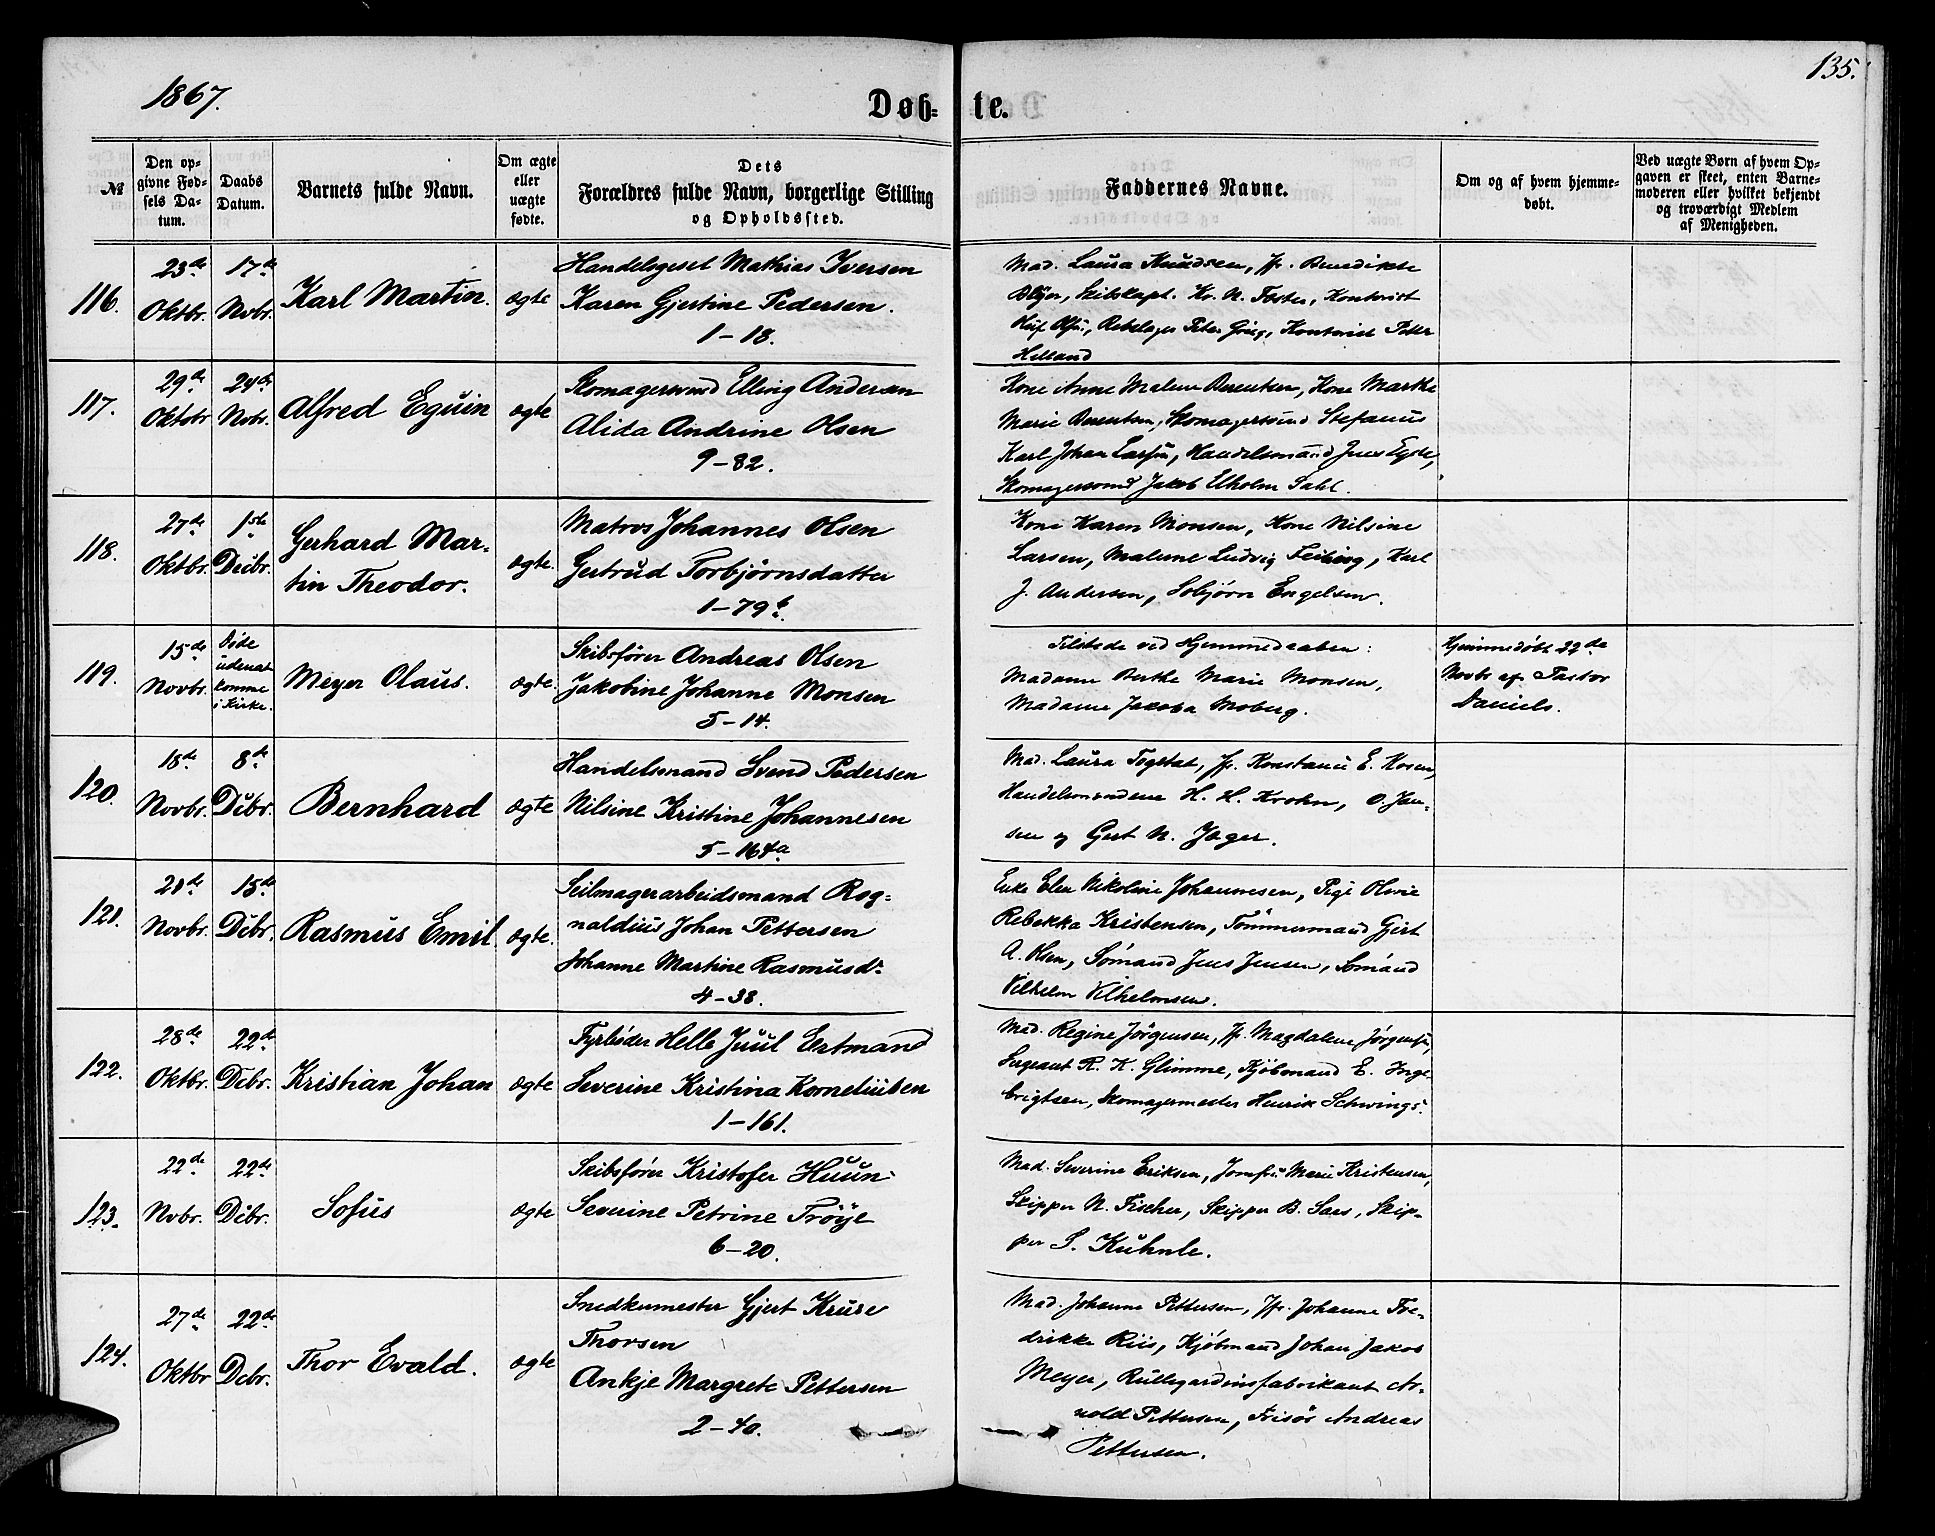 1867.
Døb-
te.
135.
№
Den op-
givne Fød-
sels Da-
tum.
Daabs
Datum.
Barnets fulde Navn.
Om ægte
eller
uægte
fødte.
Dets
Forældres fulde Navn, borgerlige Stilling
og Opholdssted.
Faddernes Navne.
Om og af hvem hjemme-
døbt.
Ved uægte Børn af hvem Op-
gaven er skeet, enten Barne-
moderen eller hvilket bekjendt
og troværdigt Medlem
af Menigheden.
116.
23de
Oktbr.
17de
Novbr.
Karl Martin.
ægte
Handelsgesel Mathias Iversen
Karen Gjertine Pedersen.
1-18.
Mad. Laura Knudsen, Jfr. Benedikte
Skibskapt. Kr. N. Foster, Kontorist
Rebslager Peter Kontorist Peter
Helland
117.
29de
Oktobr
24de
Novbr.
Alfred Eguin
ægte
Skomagersvend Elling Andersen
Alida Andrine Olsen
9-82.
Kone Anne Malene Berentsen, Kone Marthe
Marie Berentsen, Skomagersvend Stefanus
Karl Johan Larsen, Handelsmand Jens
Skomagersvend Jakob Elholm Dahl.
118.
27de
Oktbr.
1ste
Decbr.
Gerhard Mar-
tin Theodor.
ægte.
Matros Johannes Olsen
Gertrud Torbjørnsdatter
1-79b.
Kone Karen Monsen, Kone Nilsine
Larsen, Malerne Ludvig Karl
J. Andersen, Engelsen.
119.
15de
Novbr.
Døde
udenat
komme
i Kirke.
Meyer Olaus.
ægte.
Skibsfører Andreas Olsen
Jakobine Johanne Monsen
5-14.
Tilstede ved Hjemmedaaben:
Madame Berthe Marie Monsen,
Madame Jakoba Moberg.
Hjemmedøbt 22de
Novbr af Pastor
Daniels.
120.
18de
Novbr.
8de
Dcbr.
Bernhard
ægte
Handelsmand Svend Pedersen
Nilsine Kristine Johannesen
5-164a
Mad. Laura Jfr. Konstance E.
Handelsmændene H. H. Krohn, O. Jan-
sen og Gert N. Jager.
121.
21de
Novbr.
15de
Dcbr.
Rasmus Emil
ægte.
Seilmagerarbeidsmand Rog-
naldius Johan Pettersen
Johanne Martine Rasmusdr.
4-38.
Enke Elen Nikoline Johannesen, Pige Olivie
Rebekka Kristensen, Tømmermand Gjert
A. Olsen, Sømand Jens Jensen, Sømand
Vilhelm Vilhelmsen.
122.
28de
Oktbr.
22de
Dcbr.
Kristian Johan
ægte
Fyrbøder Helle Juul Ertmand
Severine Kristina Korneliusen
1-161.
Mad. Regine Jørgensen, Jfr. Magdalene Jørgensen,
Sergeant R. K. Glimme, Kjøbmand E. Inge-
brigtsen, Skomagermester Henrik Schwings.
123.
22de
Novbr.
22de
Dcbr.
Sofus
ægte
Skibsfører Kristofer Huun.
Severine Petrine Trøye
6-20.
Mad. Severine Eriksen, Jomfru Marie Kristensen,
Skipper N. Fischer, Skipper B. Sars, Skip-
per S. Kuhnle.
124.
27de
Oktbr
22de
Dcbr.
Thor Evald.
ægte
Snedkermester Gjert Kruse
Thorsen
Ankje Margrete Pettersen
2-40.
Mad. Johanne Pettersen, Jfr. Johanne Fre-
drikke Riis, Kjøbmand Johan Jakob
Meyer, Rullegardinsfabrikant Ar-
nold Pettersen, Frisør Andreas
Pettersen.